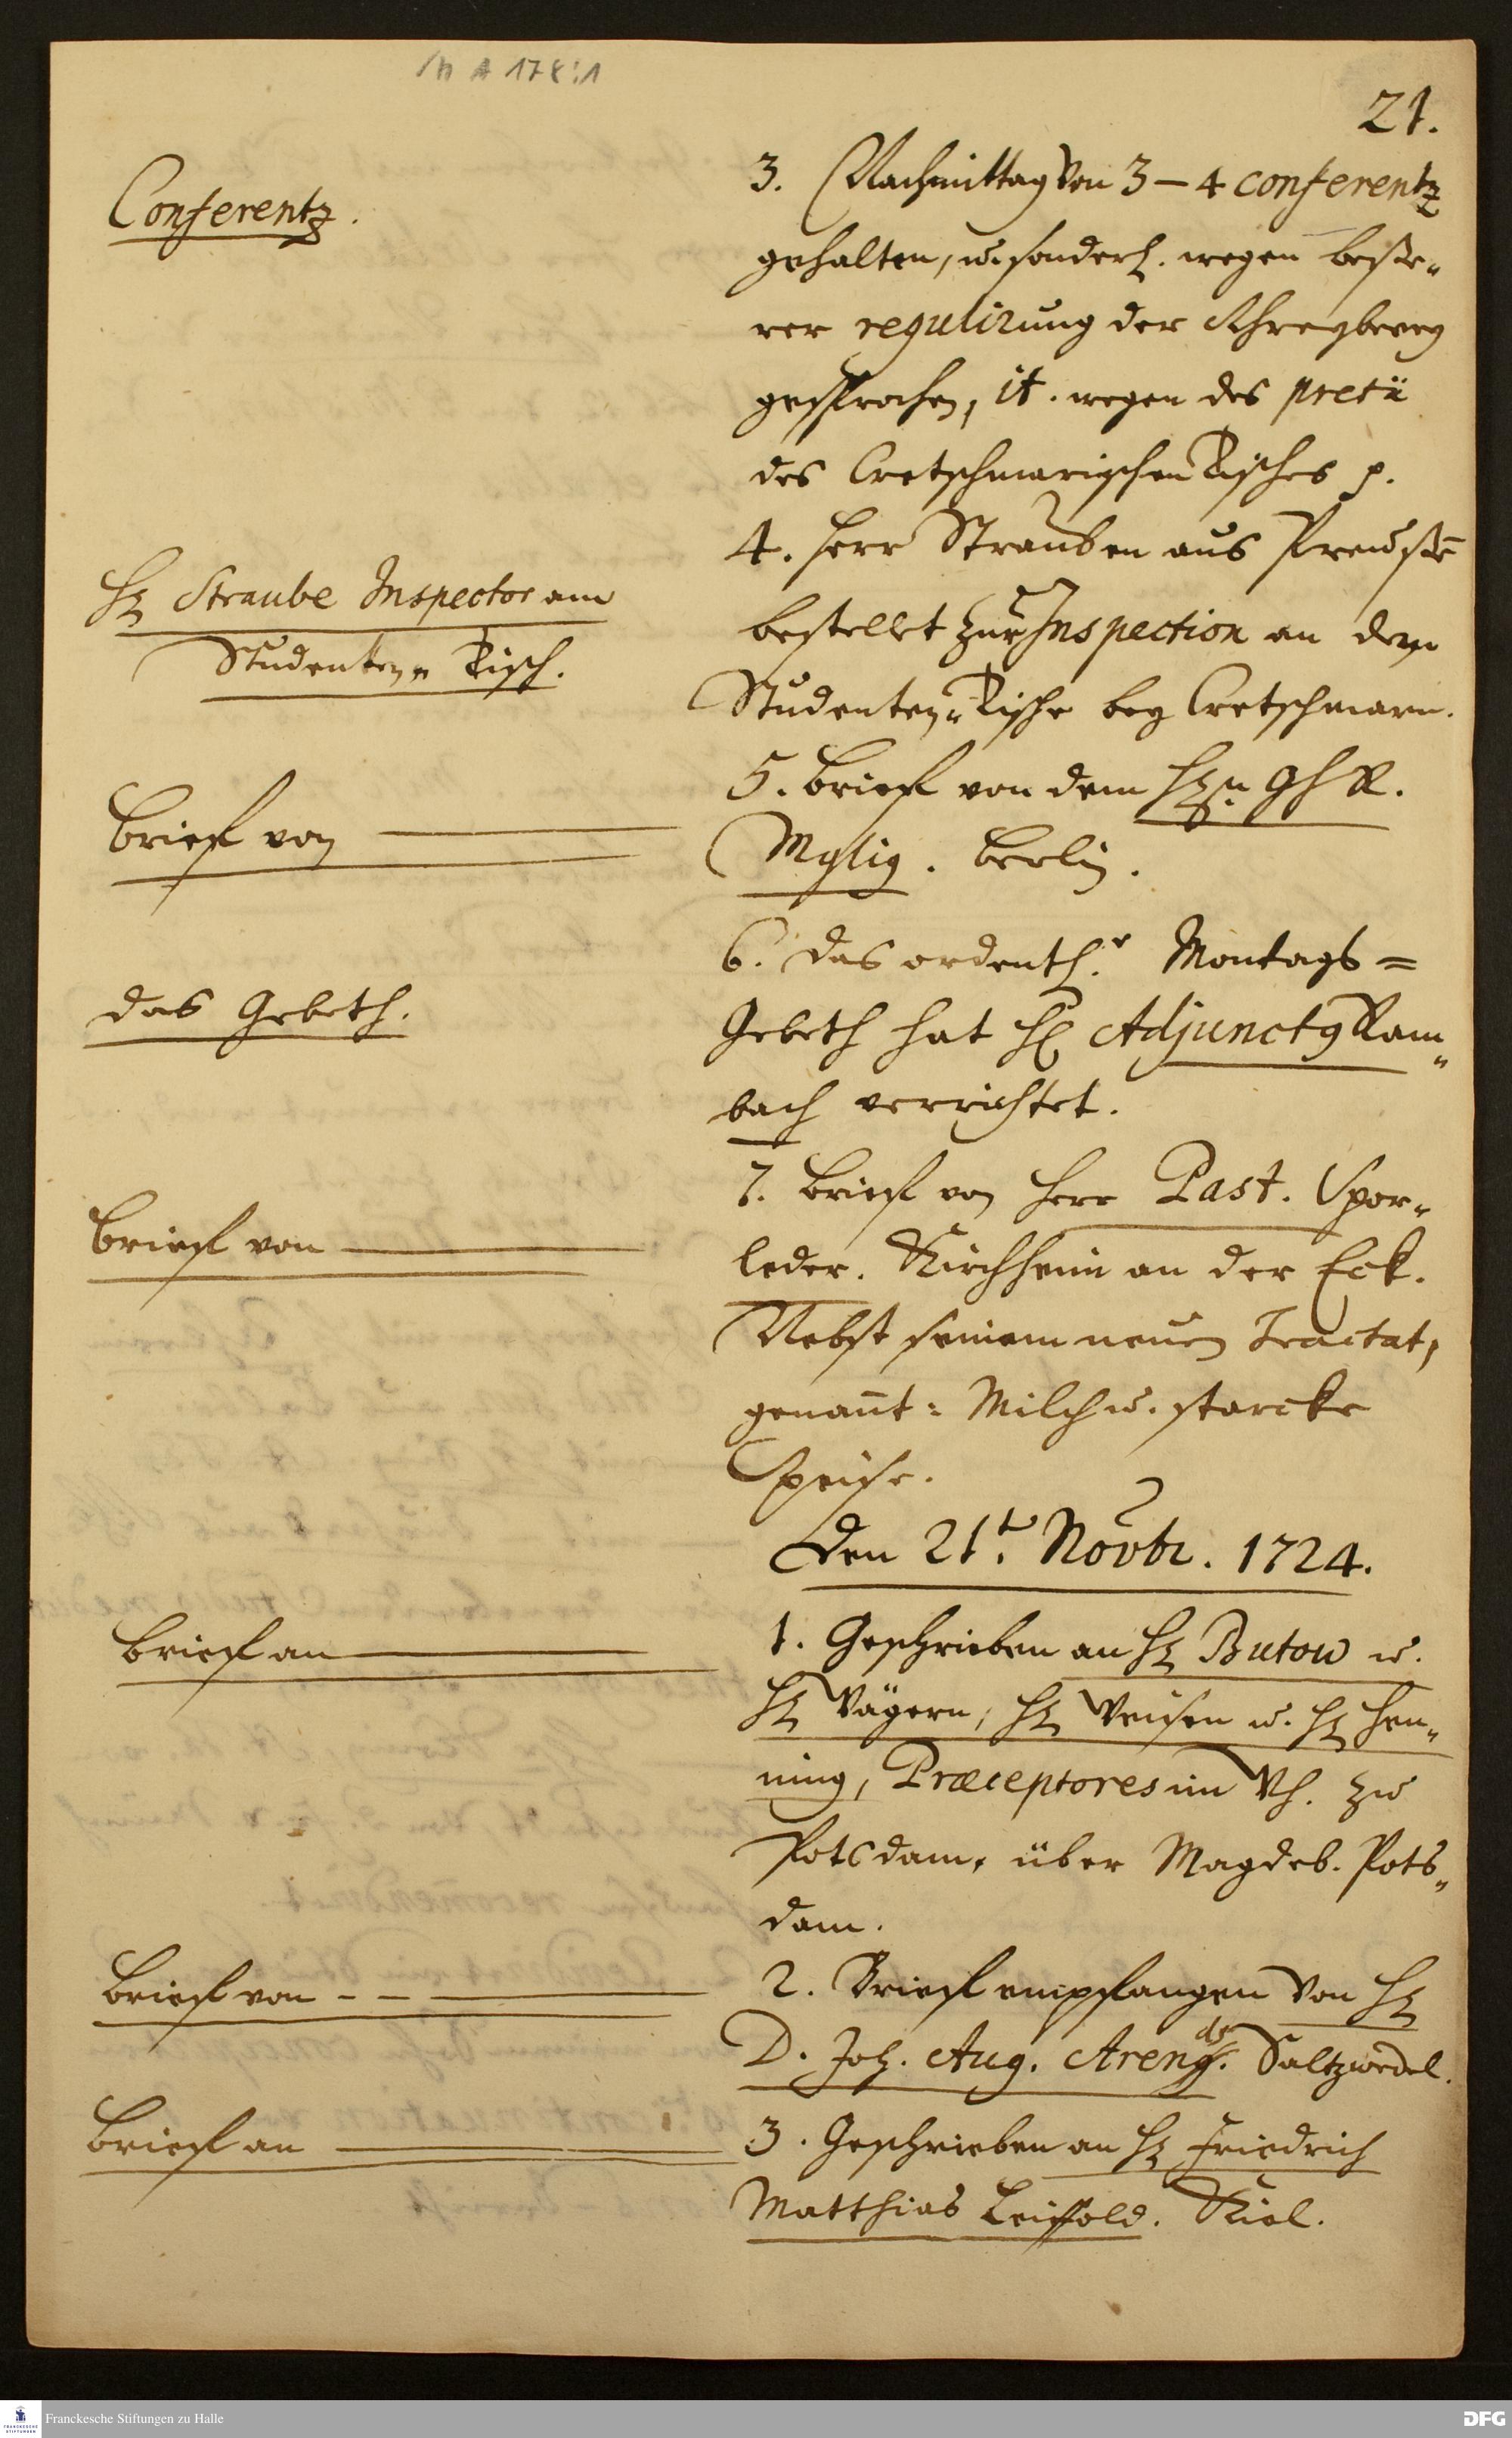 A 178:1
21.
Conferentz.
3. Nachmittag von 3–4 conferentz
gehalten, u. sonderl. wegen beße„
rer regulirung der
gesprochen, it. wegen des pretii
des Cretschmarischen Tisches p.
H. Straube Inspector am
Studenten„ Tisch.
4. Herr Strauben aus Preußē
bestellet zur Inspection an dem
Studenten„Tische bey Cretschmarn.
Brief von
5. Brief von dem H.n GhR.
Mylig. Berlin.
das Gebeth.
6. Das ordentl.e Montags=
Gebeth hat H. Adjunctg Ram„
bach verrichtet.
Brieff von
7. Brieff von Herr Past. Spor„
leder. Kirchheim an der Eck.
Nebst seinem neuen Tractat,
genañt: Milch u. starcke
Speise.
Den 21.t Novbr. 1724.
Brieff an
1. Geschrieben an H. Butow u.
H. Vägern, H. Weisen u. H. Hen„
ning, Præceptores im Wh. zu
Potsdam, über Magdeb. Pots„
dam.
Brieff von
2. Brieff empfangen von H.
D. Joh. Aug. Arends. Saltzwedel.
Brieff an
3. Geschrieben an H. Friedrich
Matthias Leippold. Kiel.
Franckesche Stiftungen zu Halle
DFG